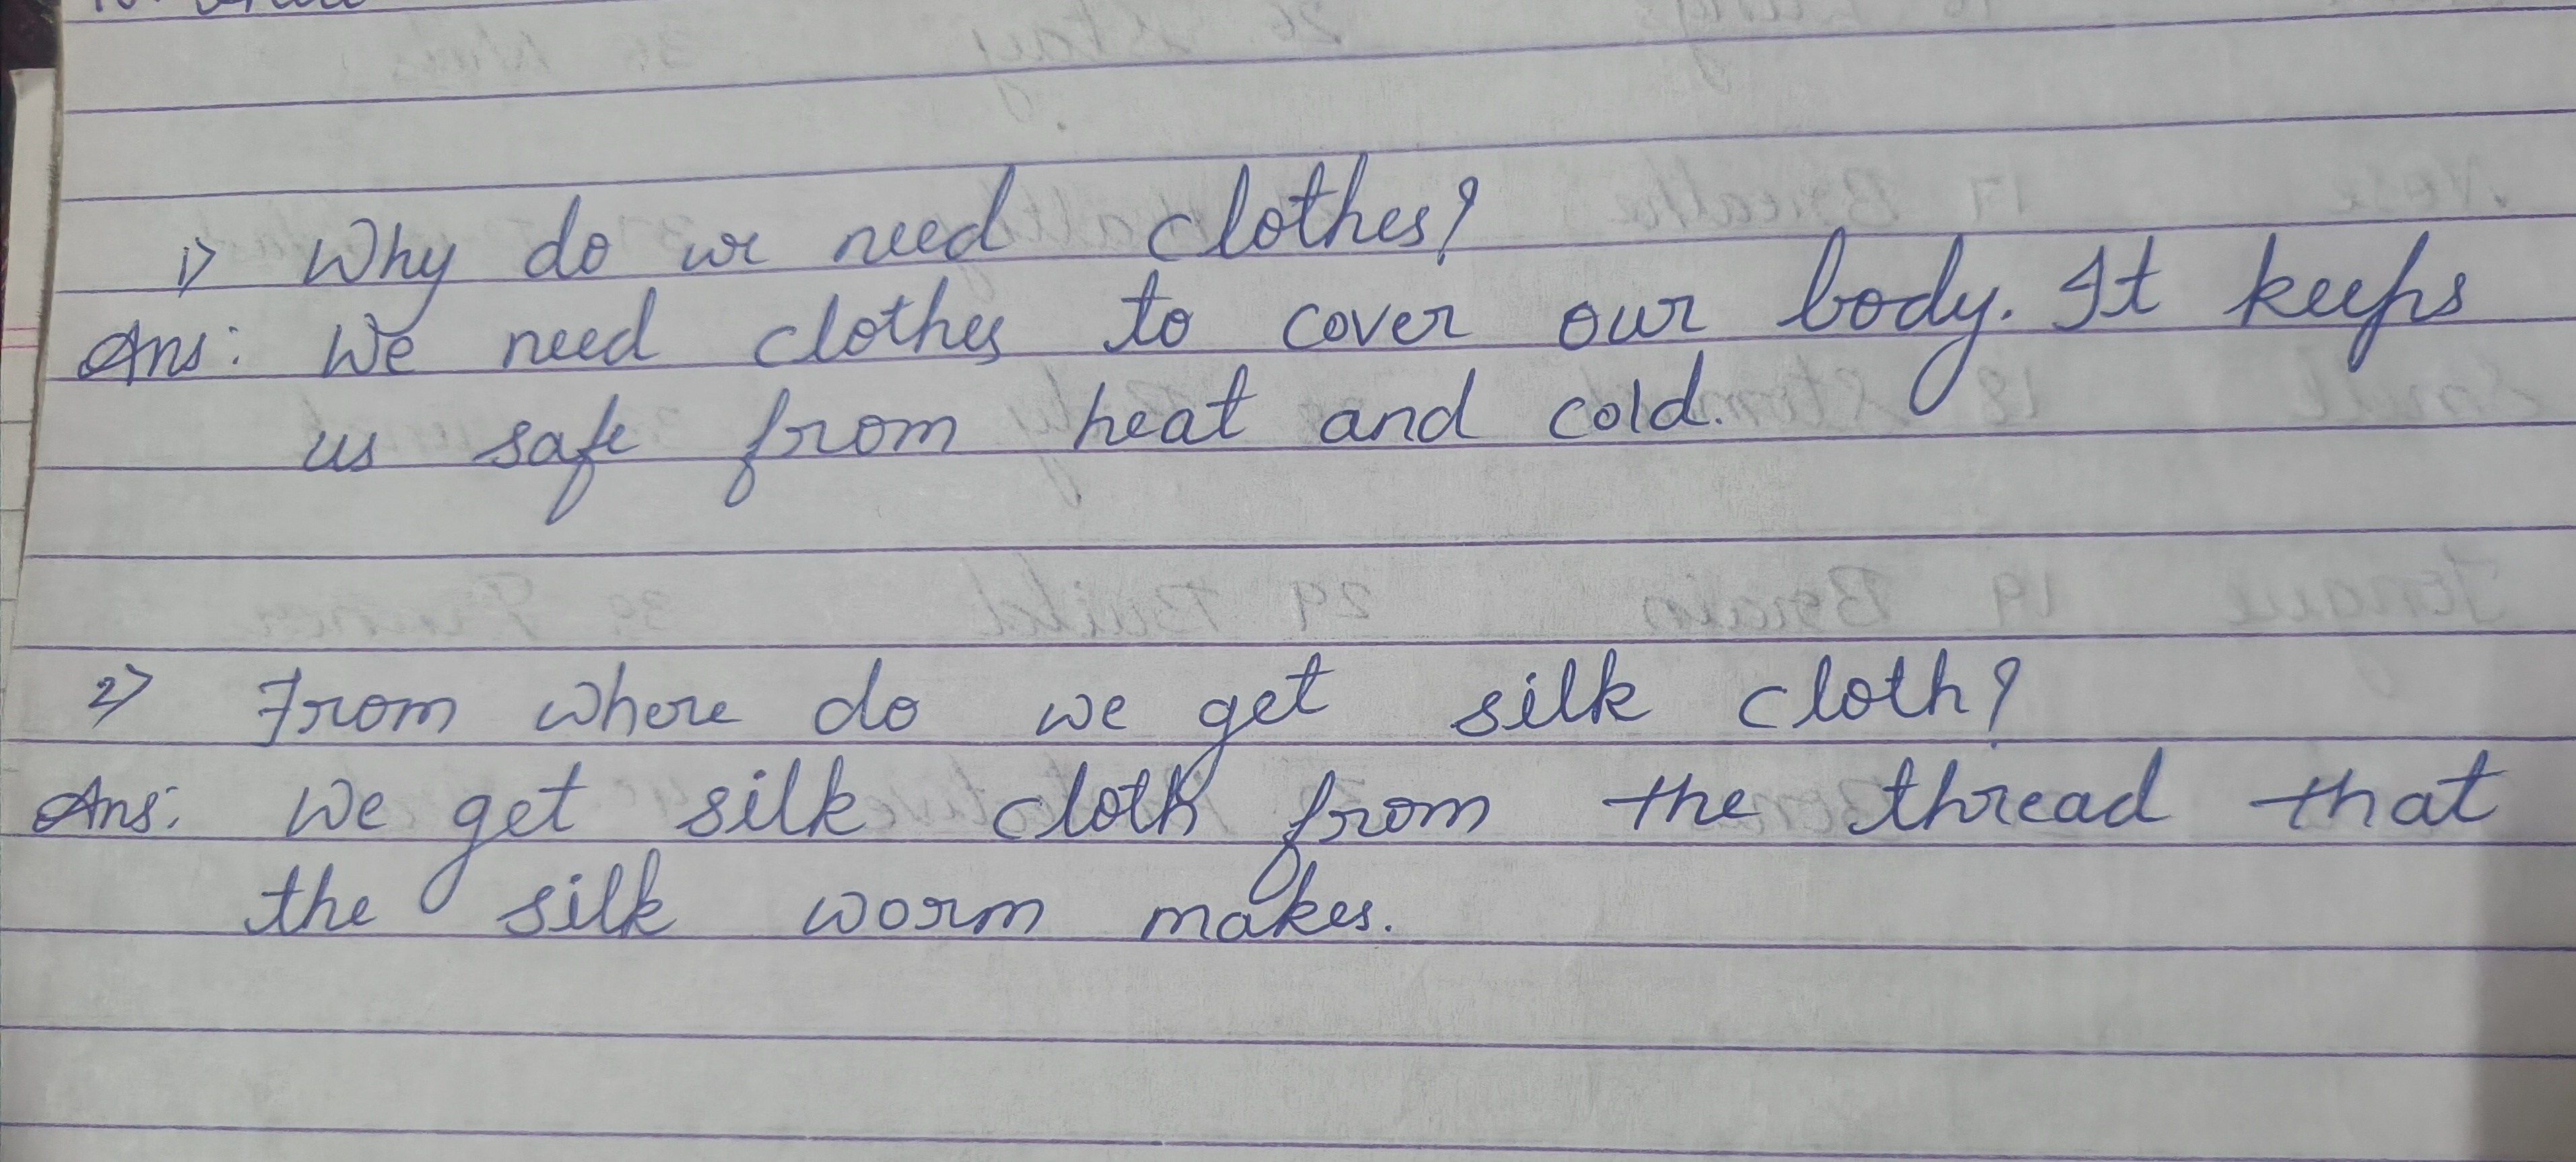 1) Why do we need clothes?
Ans: We need clothes to cover our body. It keeps
us safe from heat and cold.
2) From where do we get silk cloth?
Ans: We get silk cloth from the thread that
the silk worm makes.